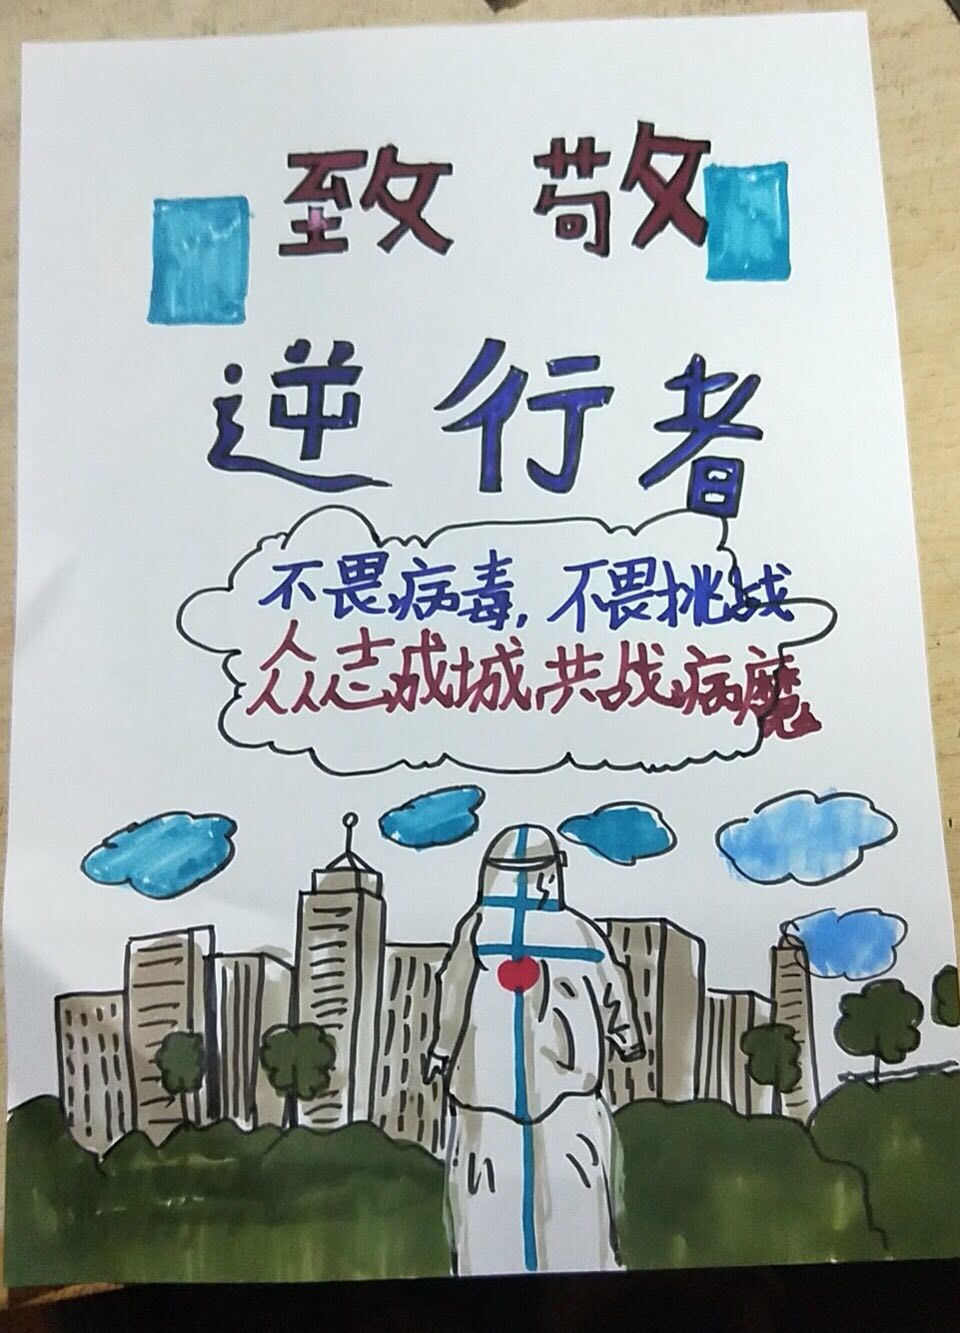 致敬
逆行者
不畏病毒,不畏挑战
众志成城,共战病魔